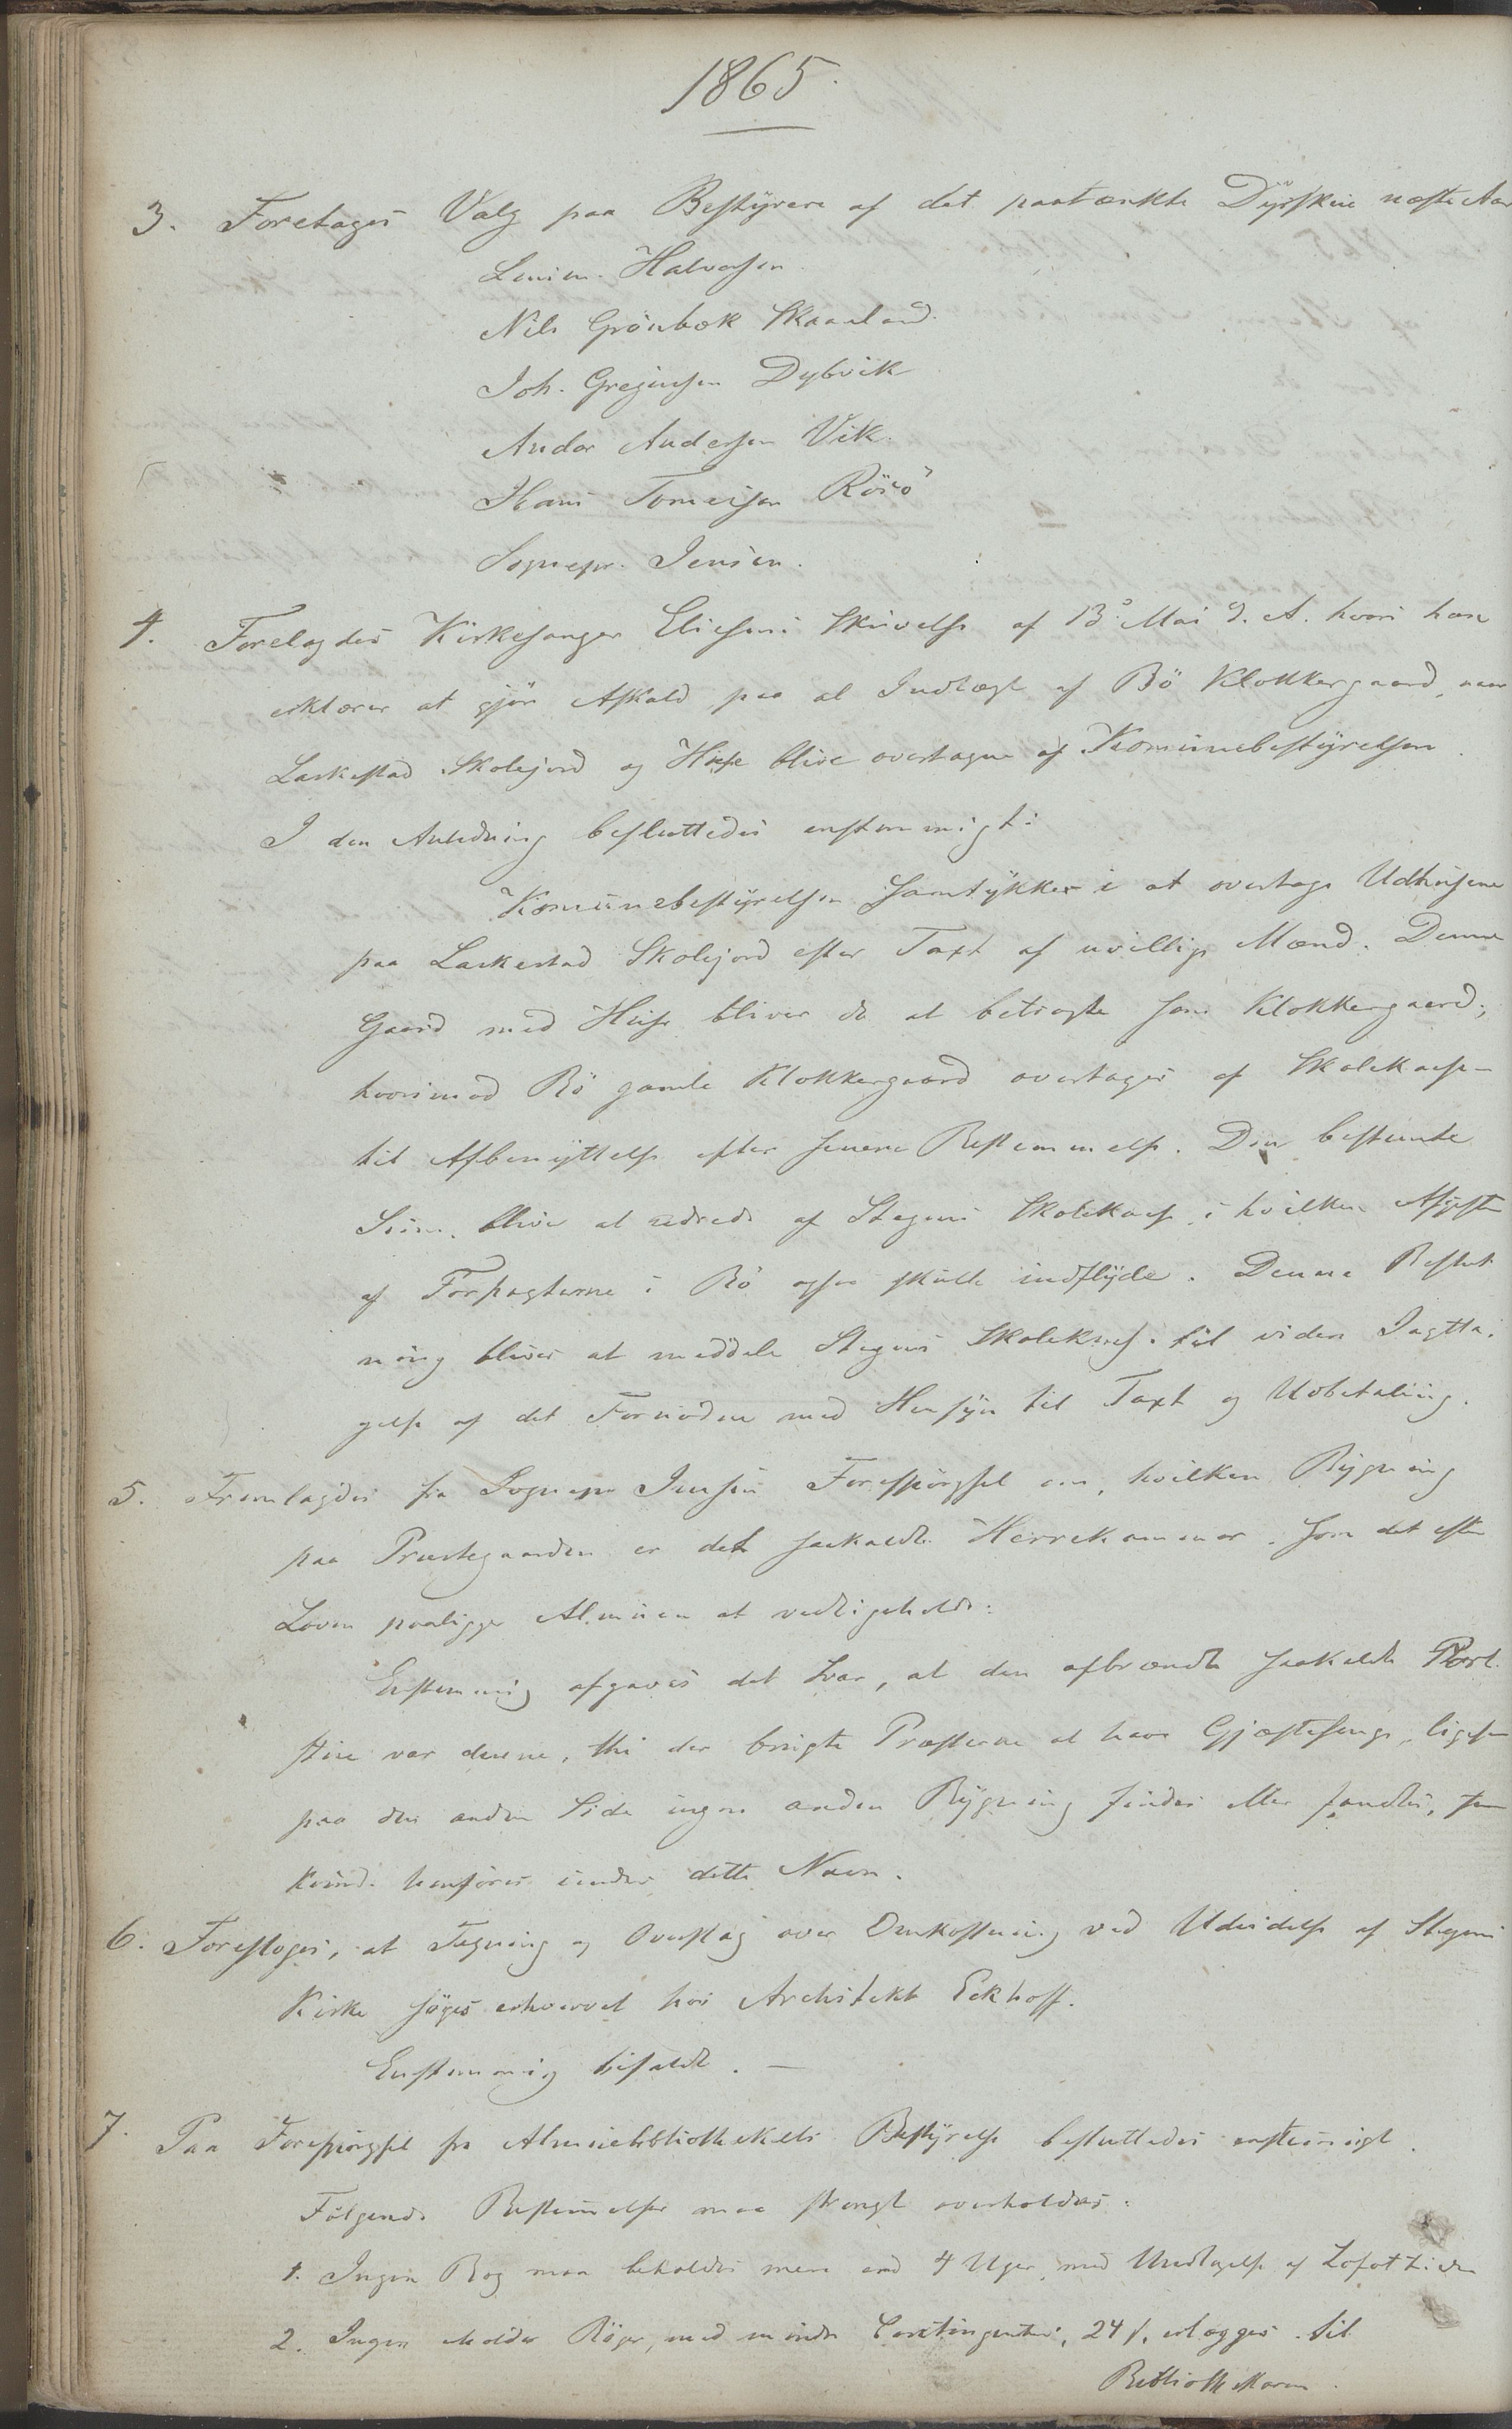 1865.
3. Foretoges Valg paa Bestyrere af det paatænkte Dyrskue næste Aar
Halvorsen
Nils Grönbæk Skaaland.
Joh. Gregusen Dybvik
Andor Andersen Vik.
Hans Tomesen Röisö
Sognepr. Jensen.
4. Forelagdes Kirkesanger Eliesens Skrivelse af 13de Mai d. A. hvori han
erklærer at gjöre Afkald paa al Indtægt af Bö Klokkergaard, naar
Laskestad Skolejord og Huse blive overtagne af Komunebestyrelsen.
I den Anledning besluttedes enstemmigt:
Komunebestyrelsen samtykker i at overtage Udhusene
paa Laskestad Skolejord efter Taxt af uvillige Mænd. Denne
Gaard med Huse bliver da at betragte som Klokkergaard;
hvorimod Bö gamle Klokkergaard overtages af Skolekassen
til Afbenyttelse efter senere Bestemmelse. Den bestemte
Sum bliver at udrede af Stegens Skolekasse, i hvilken Afgiften
af Forpagterne i Bö ogsaa skulle indflyde. Denne Beslut-
ning bliver at meddele Stegens Skolekomss. til videre Iagtta-
gelse af det Fornödne med Hensyn til Taxt og Udbetaling.
5. Fremlagdes fra Sognepr Jensen Forespörgsel om, hvilken Bygning
paa Præstegaarden er det saakaldte Herrekammer, som det efter
Loven paaligger Almuen at vedligeholde:
Enstemmig afgaves det Svar, at den afbrændte saakaldte Bort-
stue var denne, thi der brugte Præsterne at have Gjæstesenge, ligesom
paa den anden Side ingen anden Bygning findes eller fandtes, som
kunde henföres under dette Navn.
6. Foresloges, at Tegning og Overslag over Omkostning ved Udvidelse af Stegens
Kirke söges erhvervet hos Architekt Eckhoff.
Enstemmig bifaldt. —
7. Paa Forespörgsel fra Almuebibliothekets Bestyrelse besluttedes enstemmigt.
Fölgende Bestemmelser maa strengt overholdes:
1. Ingen Bog maa beholdes mere end 4 Uger, med Undtagelse af Lofottiden
2. Ingen erholder Böger, med mindre Contingenten, 24 ß, erlægges til
Bibliothekaren.